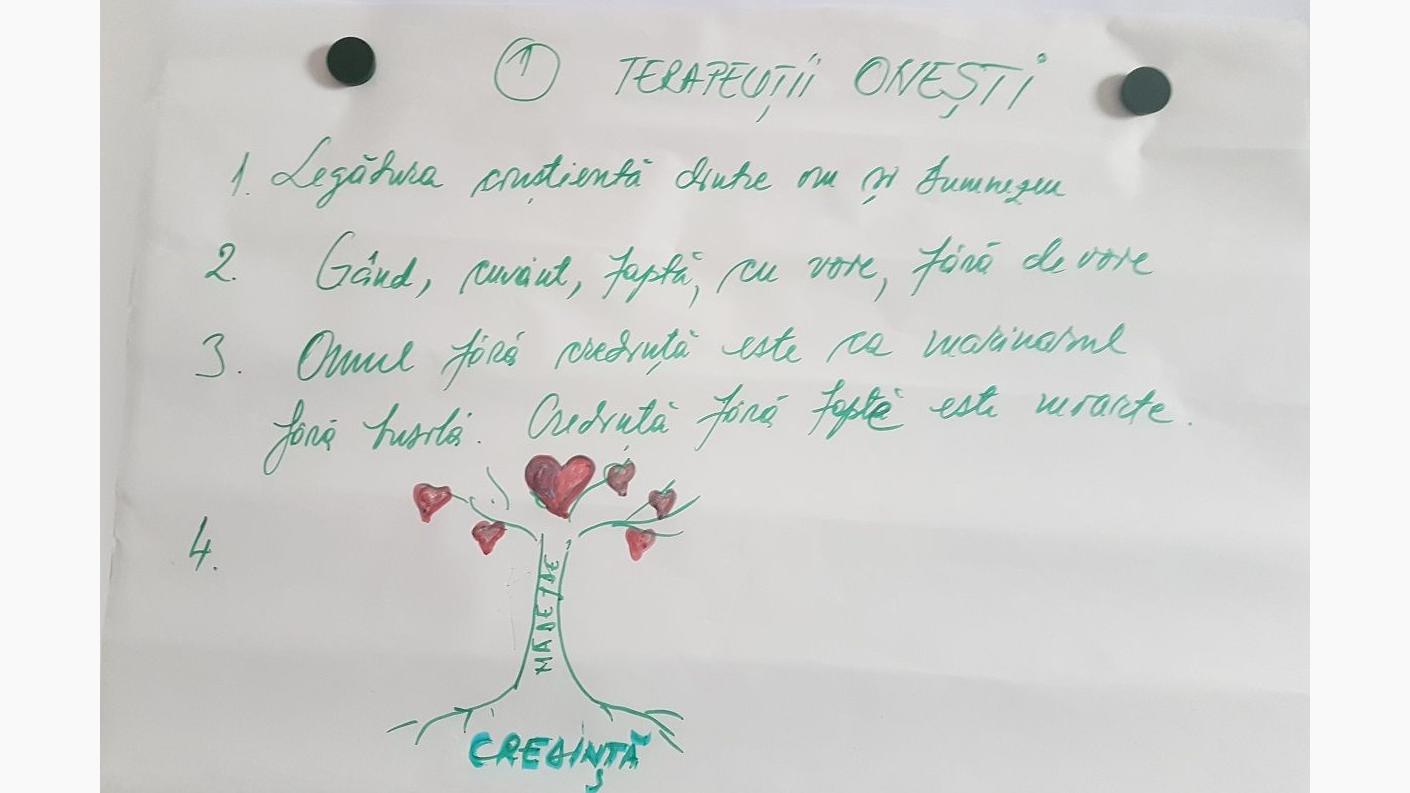 1 TERAPEUȚII ONEȘTI
1. Legătura conștientă dintre om și Dumnezeu
2. Gând, cuvânt, faptă, cu voie, fără de voie
3. Omul fără credință este ca marinarul
fără busolă. Credință fără faptă este moarte.
4.
NĂDEJDE
CREDINȚĂ